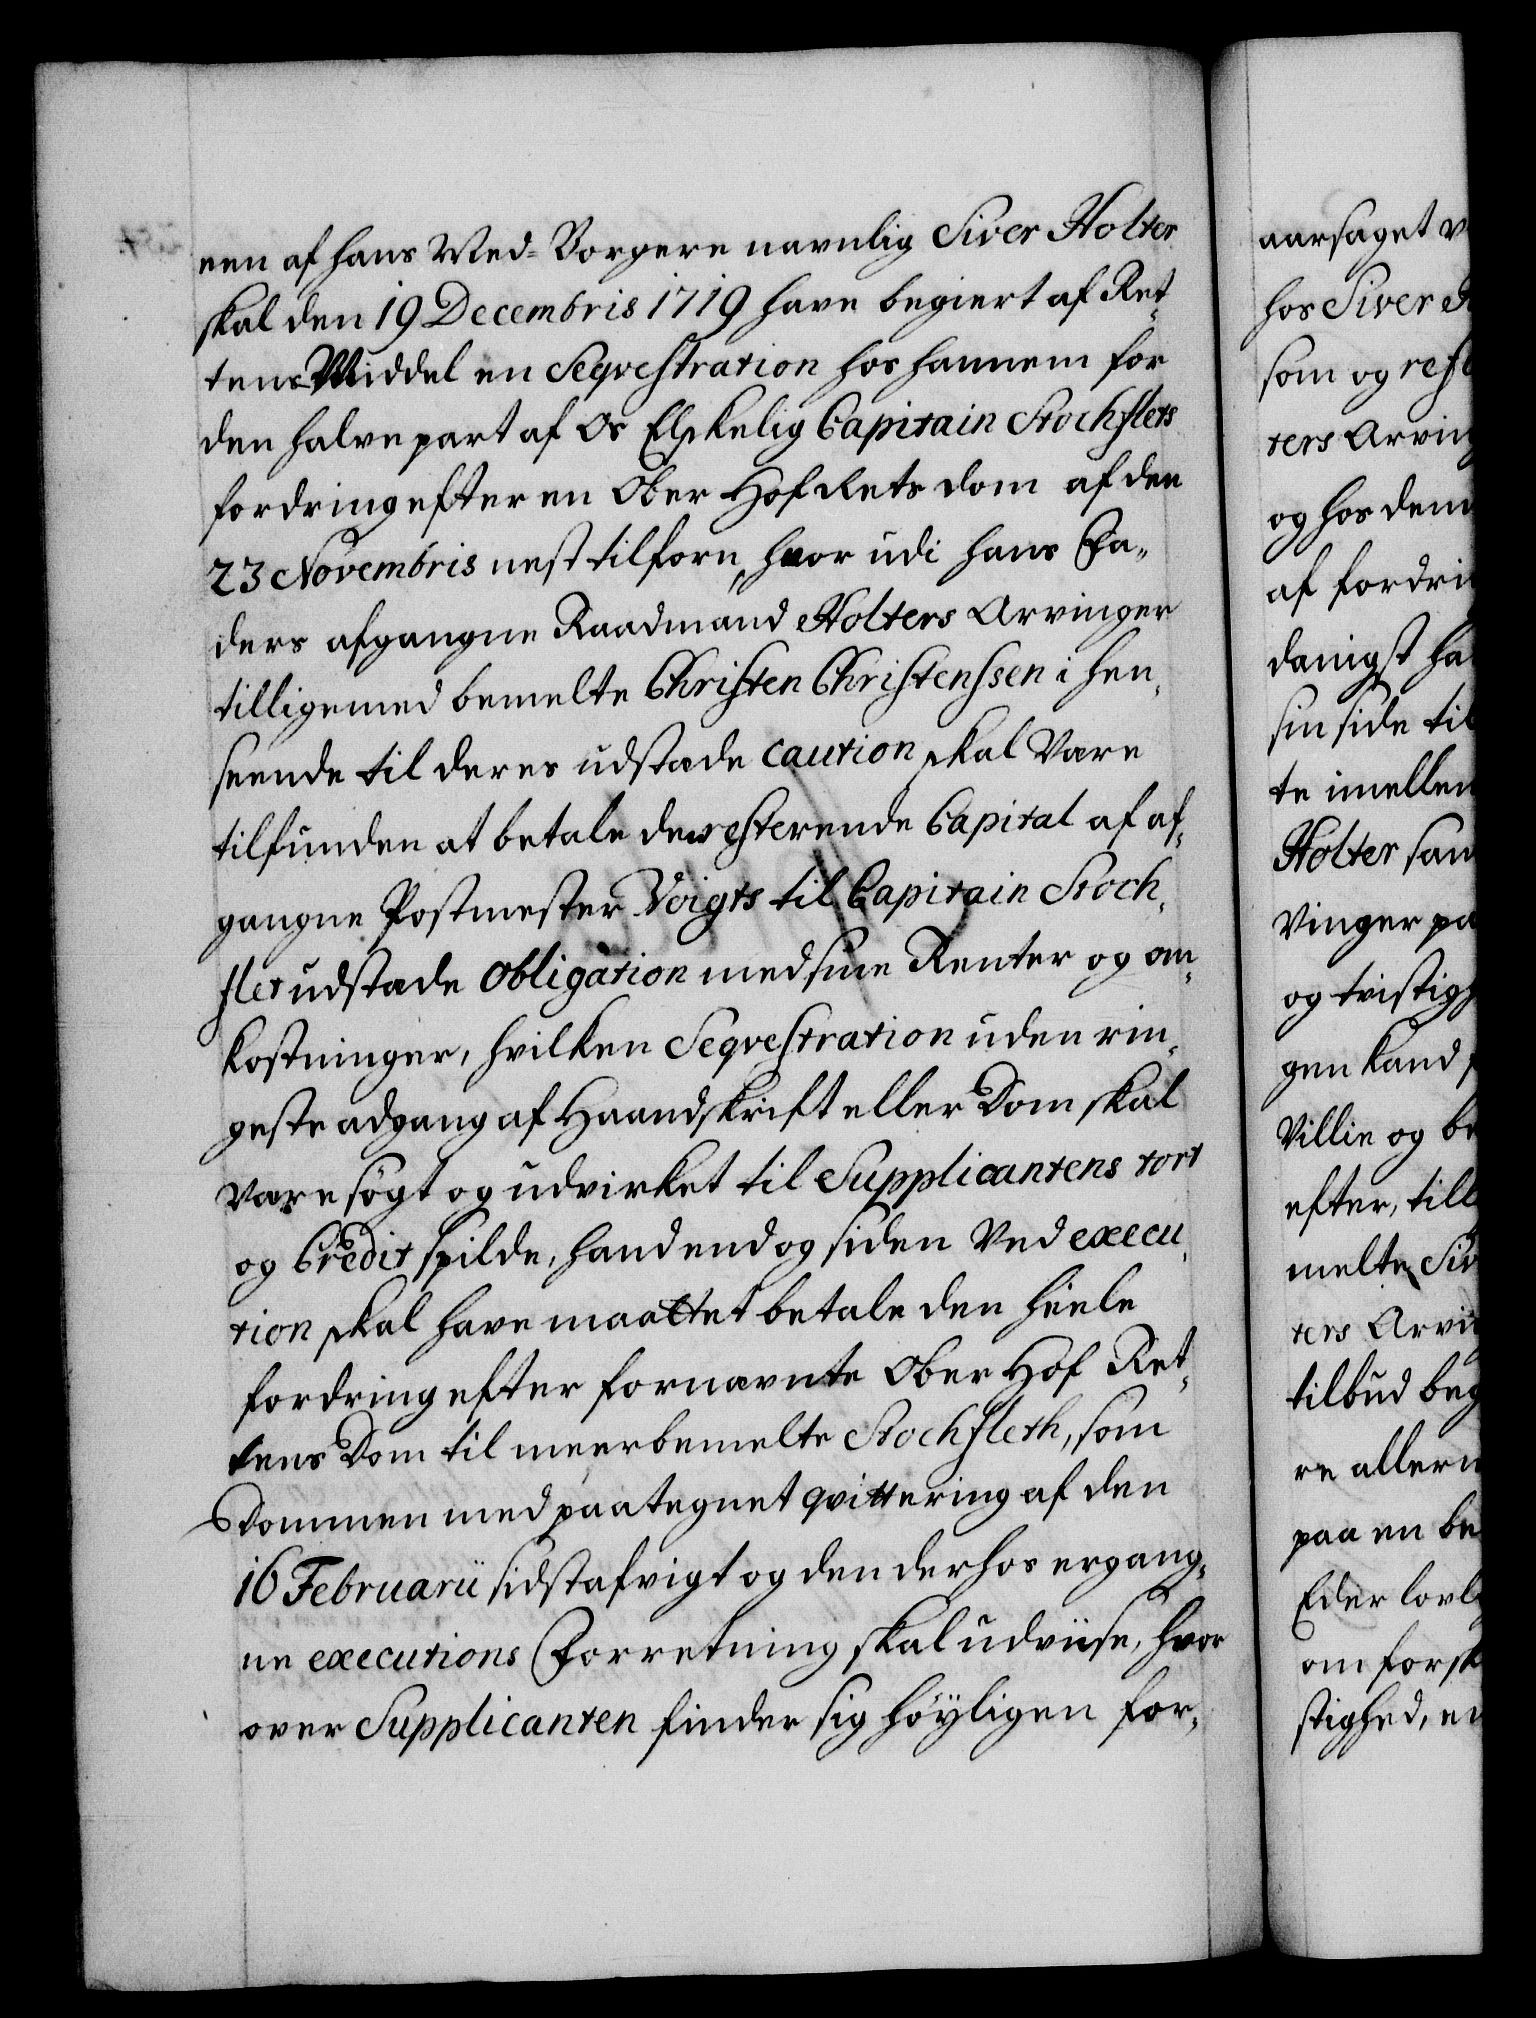 een af hans Med-Borgere navnlig Siver Holter
skal den 19 Decembris 1719 have begiert af Ret-
tens Middel en Seqvestration hos hannem for
den halve part af Os Elskelig Capitain Stochflets
fordring efter en Ober Hof Rets dom af den
23 Novembris nest tilforn, hvor udi hans Fa-
ders afgangne Raadmand Holters Arvinger
tilligemed bemelte Christen Christenssen i hen-
seende til deres udstæde caution skal være
tilfunden at betale den resterende Capital af af-
gangne Postmester Voigts til Capitain Stoch-
flet udstæde Obligation med sine Renter og om-
kostninger, hvilken Seqvestration uden rin-
geste adgang af Haandskrift eller Dom skal
være søgt og udvirket til Supplicantens tort
og Credit spilde, hand end og siden Ved execu-
tion skal have maattet betale den heele
fordring efter fornævnte Ober Hof Ret-
tens Dom til meerbemelte Stochfleth, som
Dommen med paategnet qvittering af den
16 Februarii sidst afvigt og den derhos ergang-
ne executions Forretning skal udviise, hvor
over Supplicanten finder sig høyligen for-
aarsaget v
hos Siver H
som og rest
ters Arving
og hos dem
af fordrin
danigst ha
sin side til
te imellem
Holter sam
Vinger pa
og tvistigh
gen kand
Villie og be
efter, till
melte Siv
ters Arvin
tilbud beg
re allern
paa en be
Eder lovl
om forsk
stighed, en